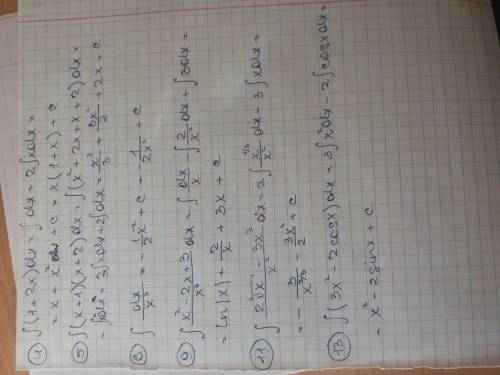 4 ∫(1+2x)dx = ∫dx + 2∫xdx =
= x + x² + c = x(1+x) + c
5 ∫(x+1)(x+2)dx = ∫(x²+2x+x+2)dx =
= ∫x² + 3∫xdx + 2∫dx = x³/3 + 3x²/2 + 2x + c
8 ∫dx/x³ = -1/2 x² + c = -1/2x² + c
9 ∫(x²-2x+3)/x³ dx = ∫dx/x - ∫2/x² dx + ∫3dx =
= ln|x| + 2/x + 3x + c
11 ∫(2∛x - 3x³)/x² dx = 2∫x^1/3/x² dx - 3∫xdx =
= -3/x^2/3 - 3x²/2 + c
13 ∫(3x² - 2cosx)dx = 3∫x²dx - 2∫cosxdx =
= x³ - 2sinx + c